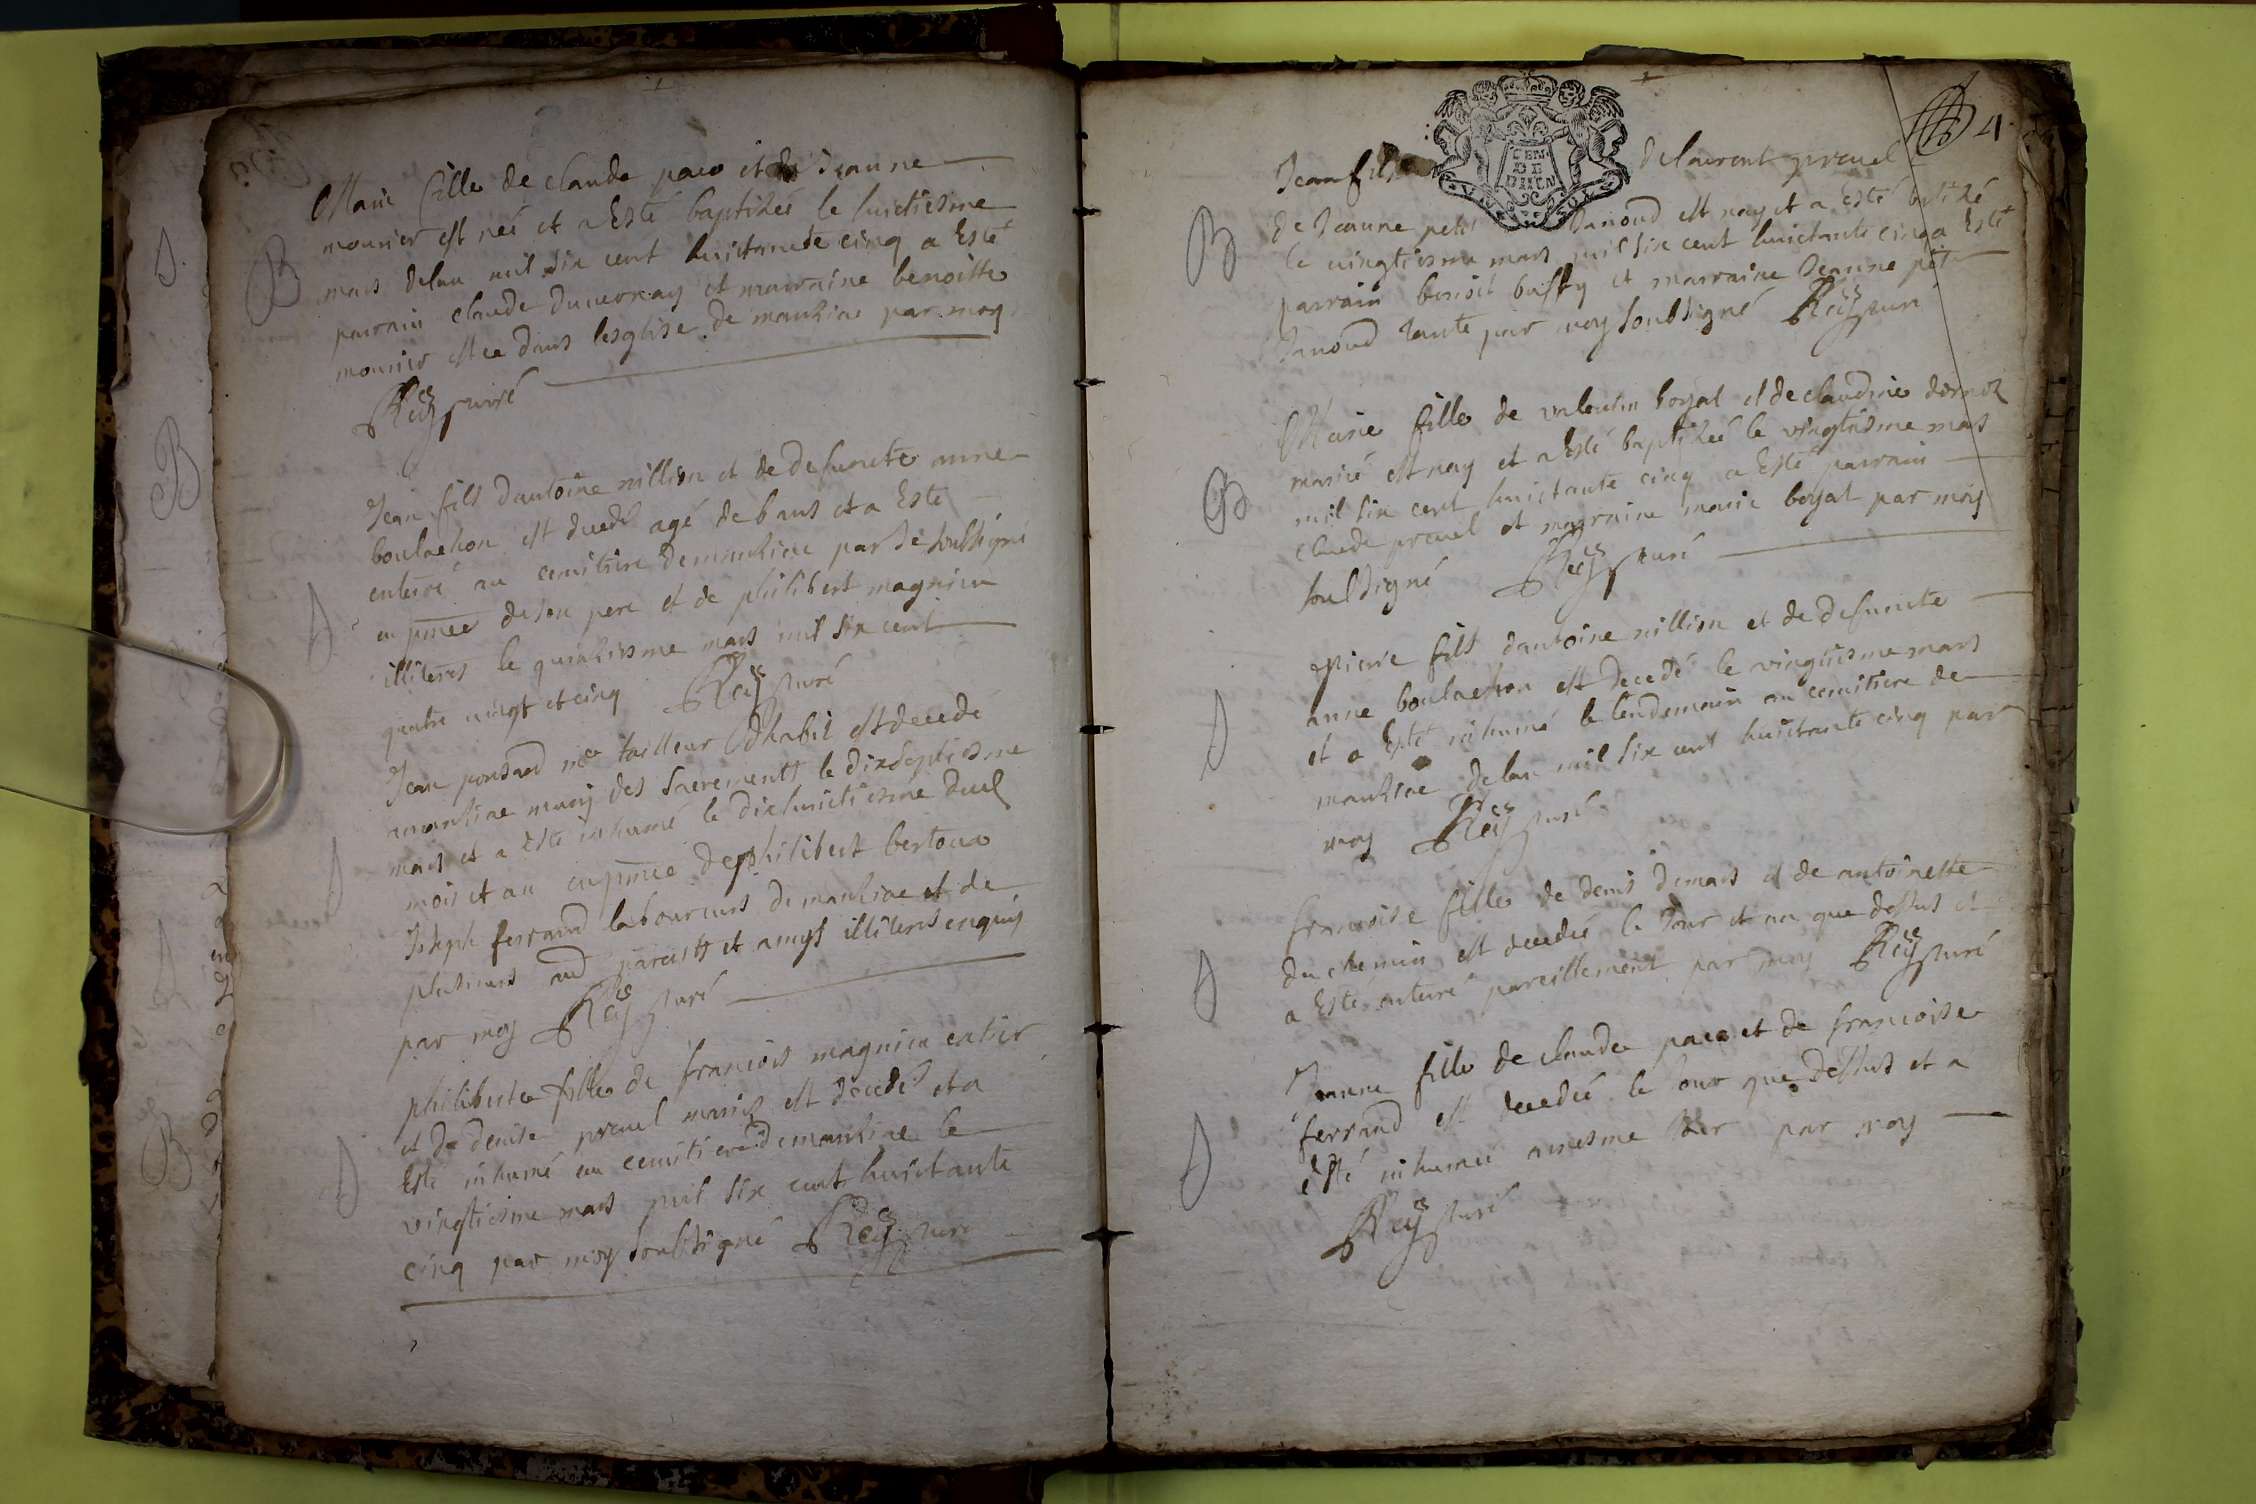 Marie fille de claude paco et de Jeanne
mounier est née et a Esté baptisée le huictiesme
mars delan mil six cent huictante cinq a Esté
parrain claude duvernay et marraine benoitte
mounier et ce dans lesglise de manziac par moy
Rey curé
Jean fils dantoine nillion et de defuncte anne
boulachon est decedé agé de 6 ans et a Esté
enterré au cemitiere demanziac par Je soubsigné
en pnce de son pere et de philibert magnien
illiterés le quinziesme mars mil six cent
quatre vingt et cinq Rey curé
Jean ponsard me tailleur dhabit est decedé
a manziac muny des sacrements le dixseptiesme
mars et a esté inhumé le dixhuictiesme dud
mois et an en pnce de philibert bertoux
Joseph ferrand laboureurs de manziac et de
plusieurs parents et amys illiterés enquis
par moy Rey curé
philiberte fille de francois magnien
et de denise preuel mariés est decedé et a
Esté inhumé au cemitiere de manziac le
vingtiesme mars mil six cent huictante
cinq par moy soubsigné Rey curé
4
Jean fils de laurent preuel
GEN DE DIION
B de Jeanne petit Janoud est nay et a Esté batizé
le vingtiesme mars mil six cent huictante cinq a Esté
parrain benoit buffy et marraine Jeanne petit
Janoud tante par moy soubsigné Rey curé
Marie fille de valentin boyat et de claudine
B mariés est nay et a Esté baptizeé le vingtiesme mars
mil six cent huictante cinq a Esté parrain
claude preuel et marraine marie boyat par moy
soubsigné Rey curé
pierre fils dantoine nillion et de defuncte
anne boulachon est decedé le vingtiesme mars
et a Esté inhumé le lendemain au cemitiere de
manziac delan mil six cent huictante cinq par
moy Rey curé
francoise fille de denis demars et de antoinette
du chemin est decedée le Jour et an que dessus et
a Esté enterré pareillement par moy Rey curé
Jeanne fille de claude paco et de francoise
ferrand est decedée le Jour que dessus et a
esté inhumée amesme Jour par moy
Rey curé